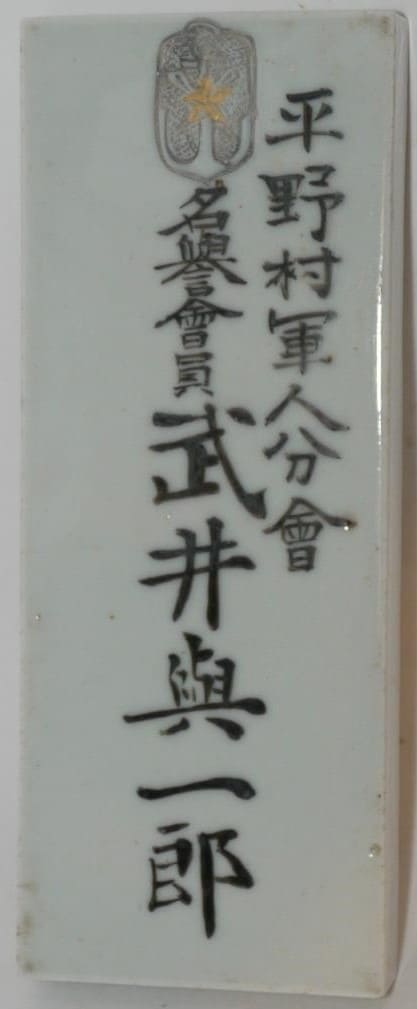 平野村軍人分會
名譽會員武井與一郎